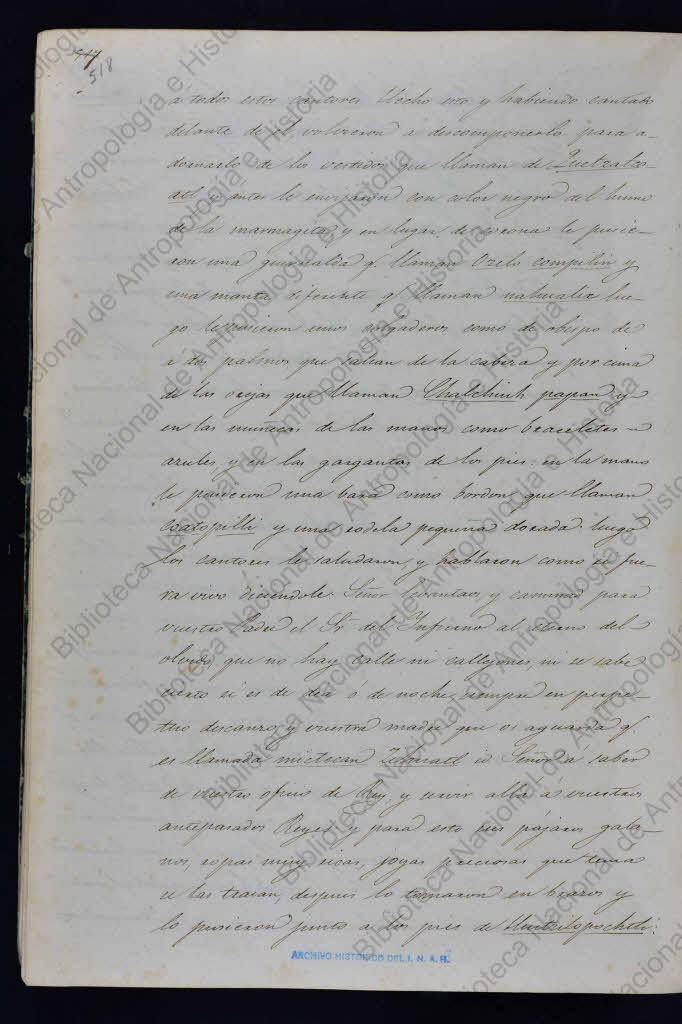 517
518
á todos estos cantores. Hecho esto, y habiendo cantado
delante de el, volvieron a descomponerlo para a-
dornarlo de los vestidos que llaman de Quetzalco-
atl y antes le envijaron con color negro del humo
de la marmagita y en lugar de corona le pusie-
ron una guirnalda q. llaman Ozelo compilin y
una manta diferente q. llaman nahualix lue-
go le pusieron unos colgaderos como de obispo de
a dos palmos que salian de la cabeza y por cima
de las orejas que llaman Chalchiuh papan y
en las muñecas de las manos como braceletes
azules, y en las gargantas de los pies: en la mano
le pusieron una bara como bordon que llaman
Coatopilli y una rodela pequeña dorada: luego
los cantores le saludaron, y hablaron como si fue-
ra vivo diciendole: Señor lebantaos, y caminad para
vuestro Padre el Sr. del Infierno al eterno del
olvido que no hay calle ni callejones, ni se sabe
cierto si es de dia ó de noche, siempre en perpe-
tuo descanzo, y vuestra madre que os aguarda q.
es llamada mictecan Zihuatl id Señor á saber
de vuestro oficio de Rey, y servir alla á vuestros
antepasados Reyes y para esto sus pájaros gala-
nos, ropas muy ricas, joyas preciosas que tenia
se las traian, despues lo tomaron en brazos y
lo pusieron junto a los pies de Huitzilopochtli:
ARCHIVO HISTORICO DEL I. N. A. H.
Biblioteca Nacional de Antropología e Historia